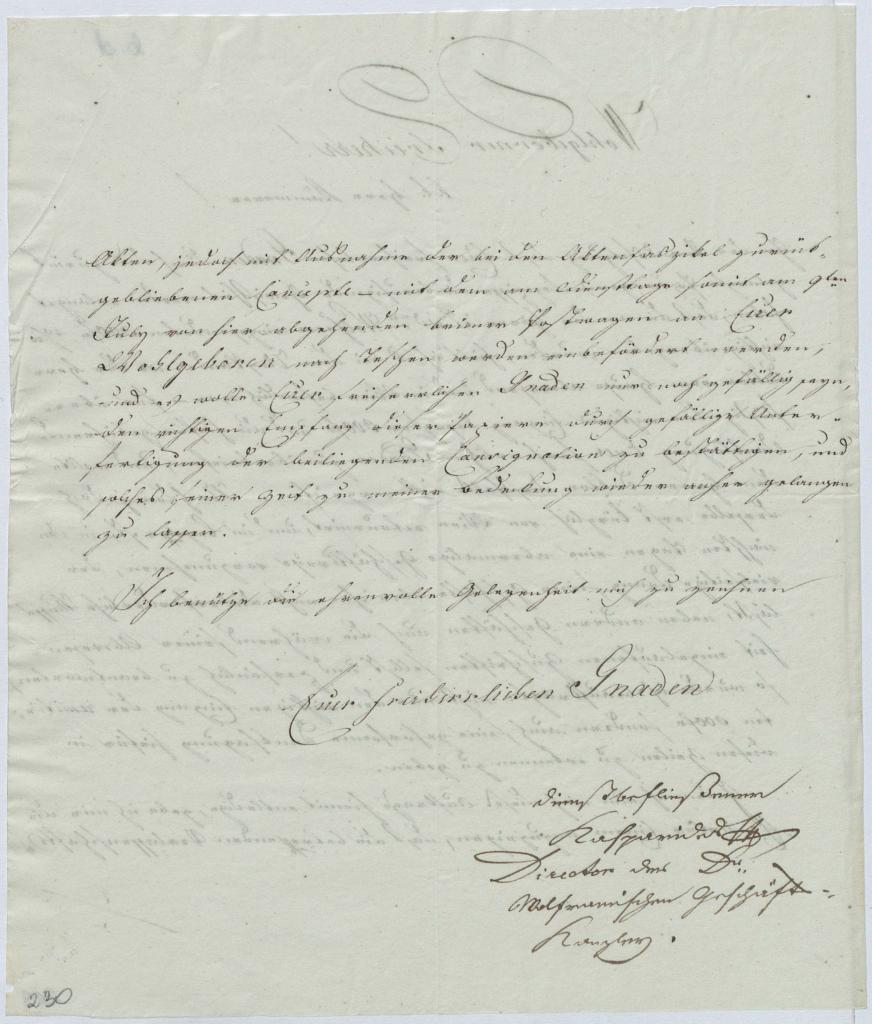 Akten, jedoch mit Ausnahme der bei den Aktenfaszikel zurück-
gebliebenen Concepte – mit dem am Dienstage somit am 9ten
July von hier abgehenden brünner Postwagen an Euer
Wohlgeboren nach Teschen werden einbefördert werden,
und es wolle Euer freiherrlichen Gnaden nur noch gefällig seyn,
den richtigen Empfang dieser Papiere durch gefällige Unter-
fertigung der beiliegenden Consignation zu bestättigen, und
solches seiner Zeit zu meiner Bedeckung wieder anher gelangen
zu lassen.
Ich benütze die ehrenvolle Gelegenheit mich zu zeichnen
Euer Freiherrlichen Gnaden
dienstbefließener
Director des Dr.
Wolframischen Geschäft-
Kanzley.
230